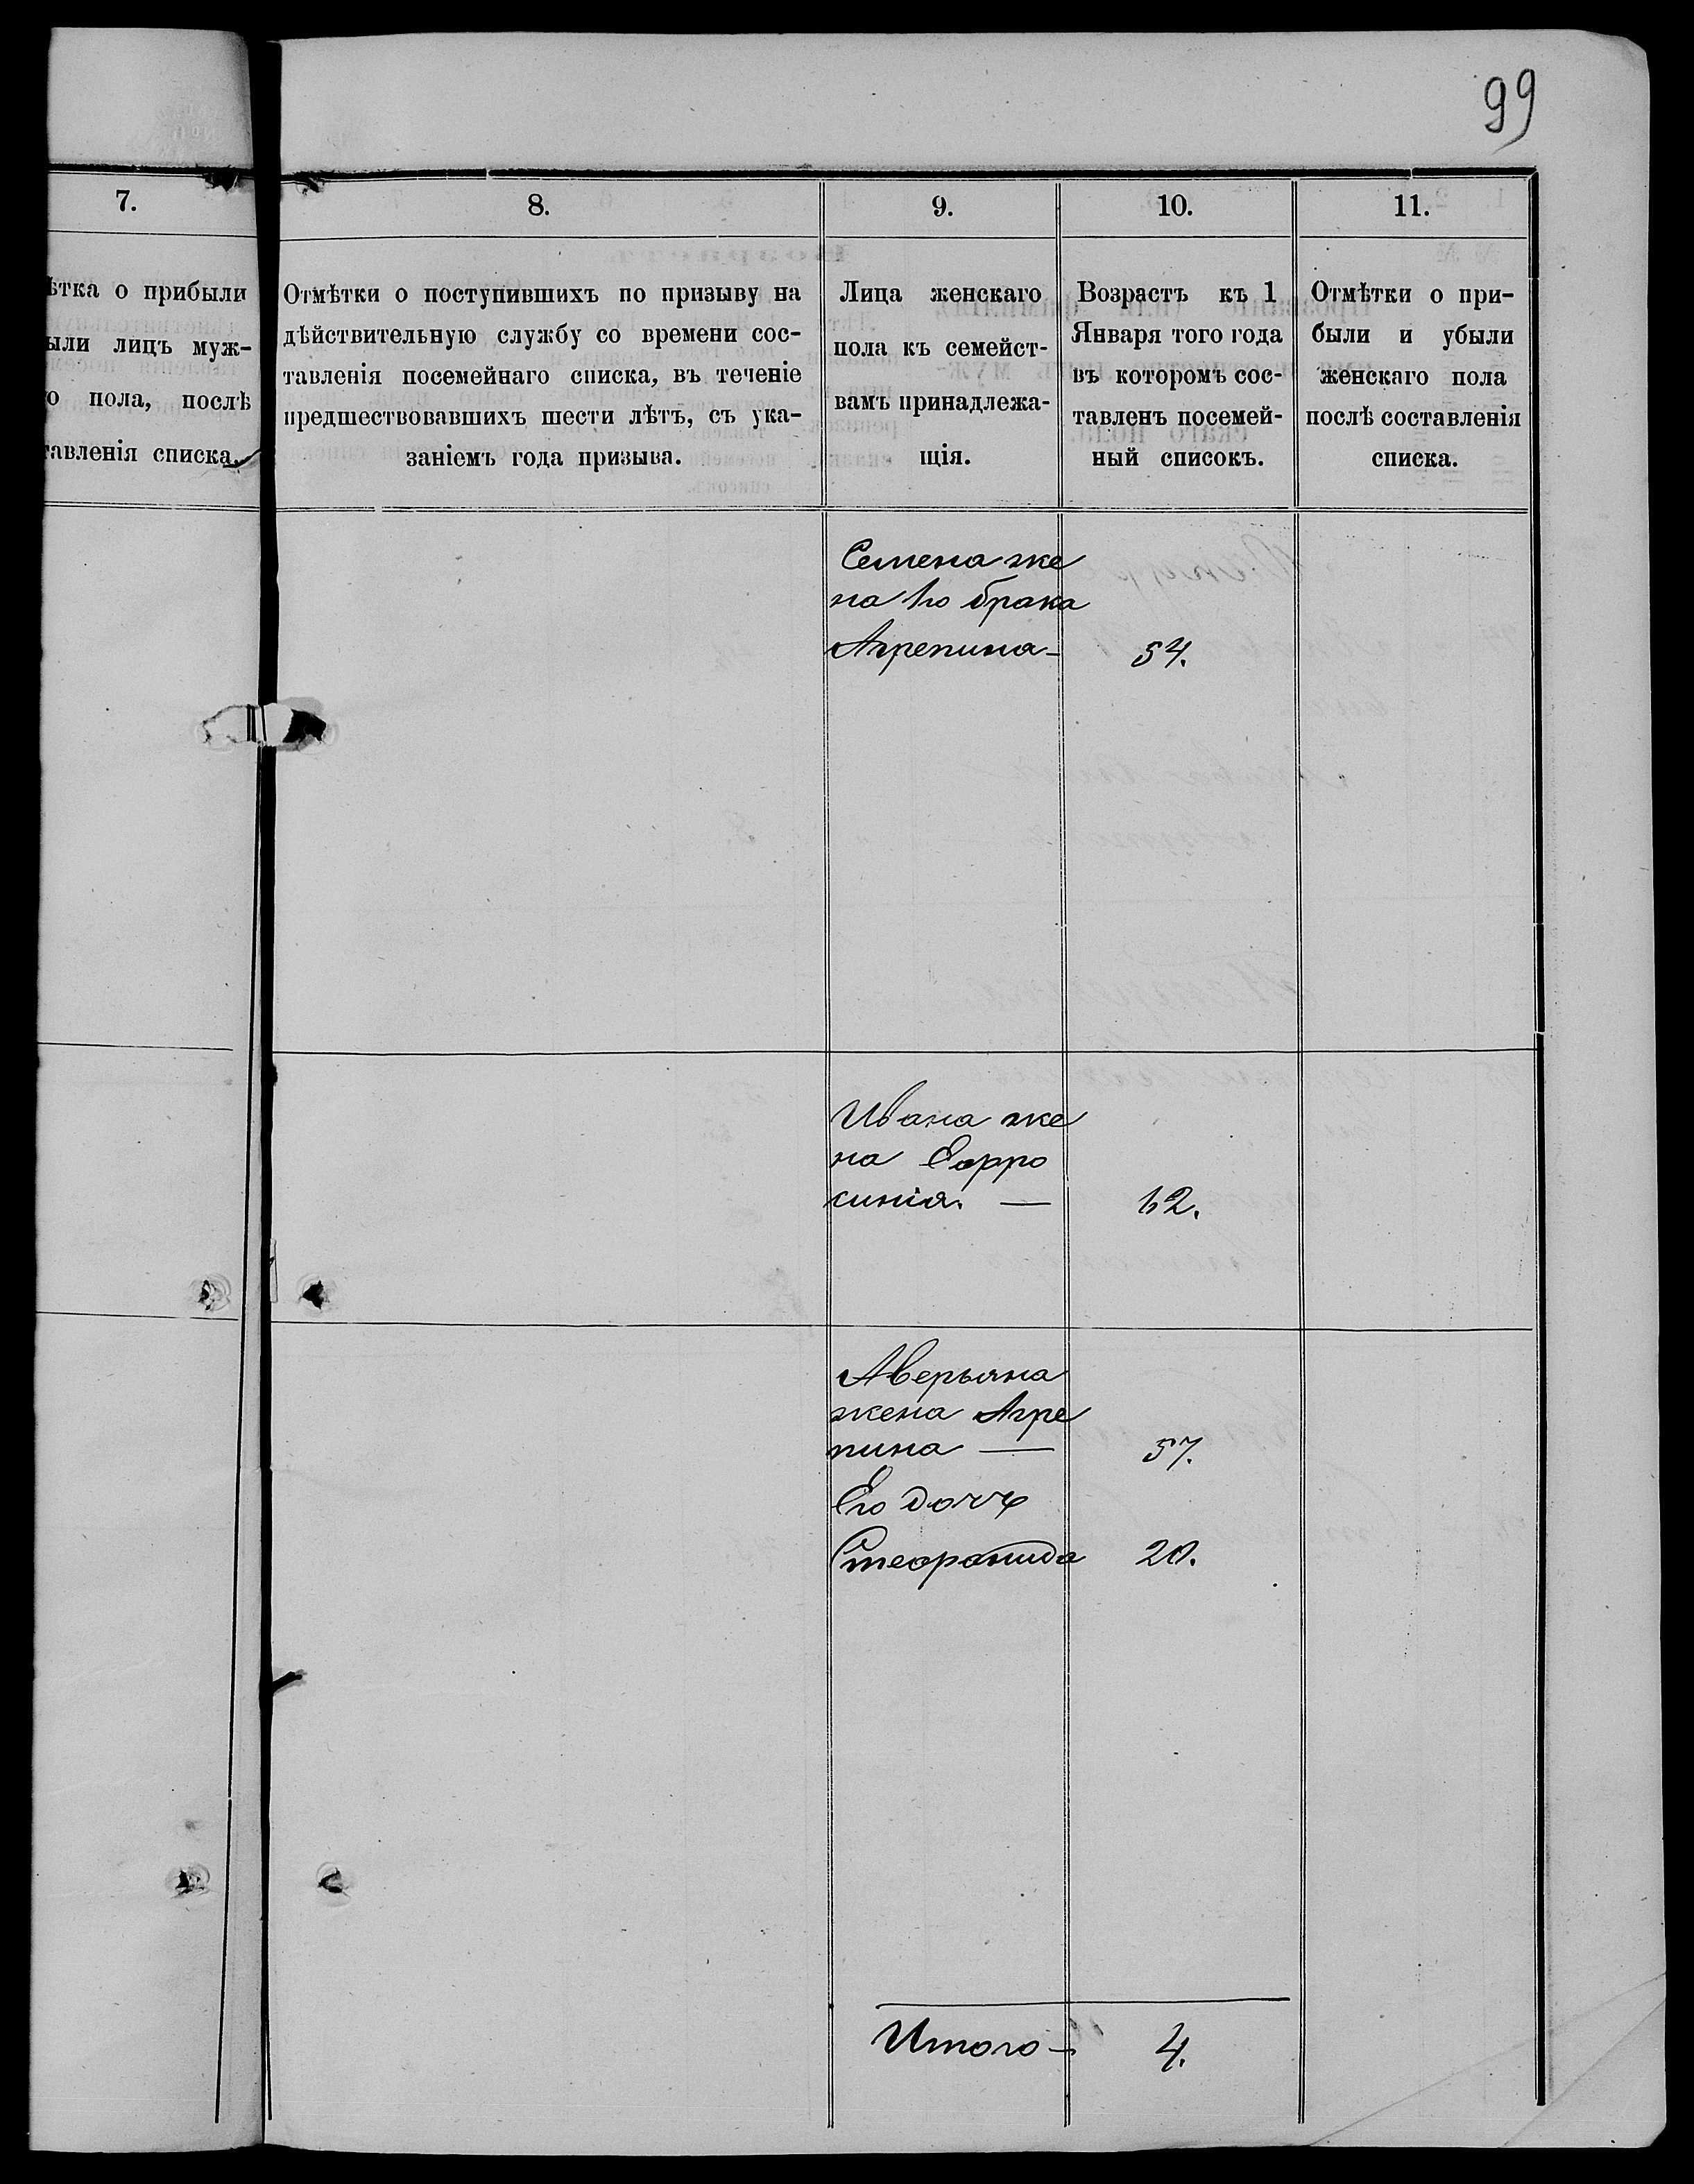 99
7.
8.
9.
10.
11.
ѣтка о прибыли
ыли лицъ муж-
о пола, послѣ
тавленія списка.
Отмѣтки о поступившихъ по призыву на
дѣйствительную службу со времени сос-
тавленія посемейнаго списка, въ теченіе
предшествовавшихъ шести лѣтъ, съ ука-
заніемъ года призыва.
Лица женскаго
пола къ семейст-
вамъ принадлежа-
щія.
Возрастъ къ 1
Января того года
въ которомъ сос-
тавленъ посемей-
ный списокъ.
Отмѣтки о при-
были и убыли
женскаго пола
послѣ составленія
списка.
Семена же
на 1го брака
Агрепина - 54.
Ивана же
на Ефро
синія. — 62.
Аверьяна
жена Агре
пина — 57.
Его дочь
Стефанида 20.
Итого - 4.